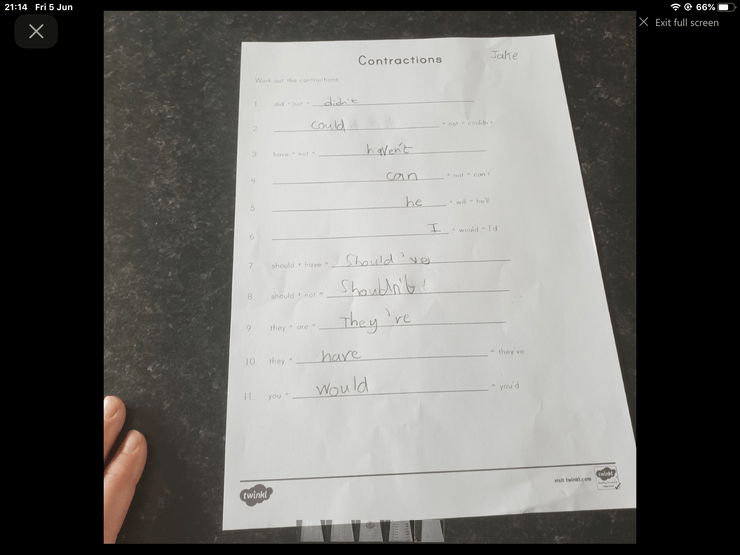 21:14 Fri 5 Jun 66%
Exit full screen
Contractions Jake
Work out the contractions.
1. did + not = didn't
2. could + not = couldn't
3. have + not = haven't
4. can + not = can't
5. he + will = he'll
6. I + would = I'd
7. should + have = Should've
8. should + not = Shouldn't
9. they + are = They're
10. they + have = they've
11. you + would = you'd
twinkl
visit twinkl.com
twinkl